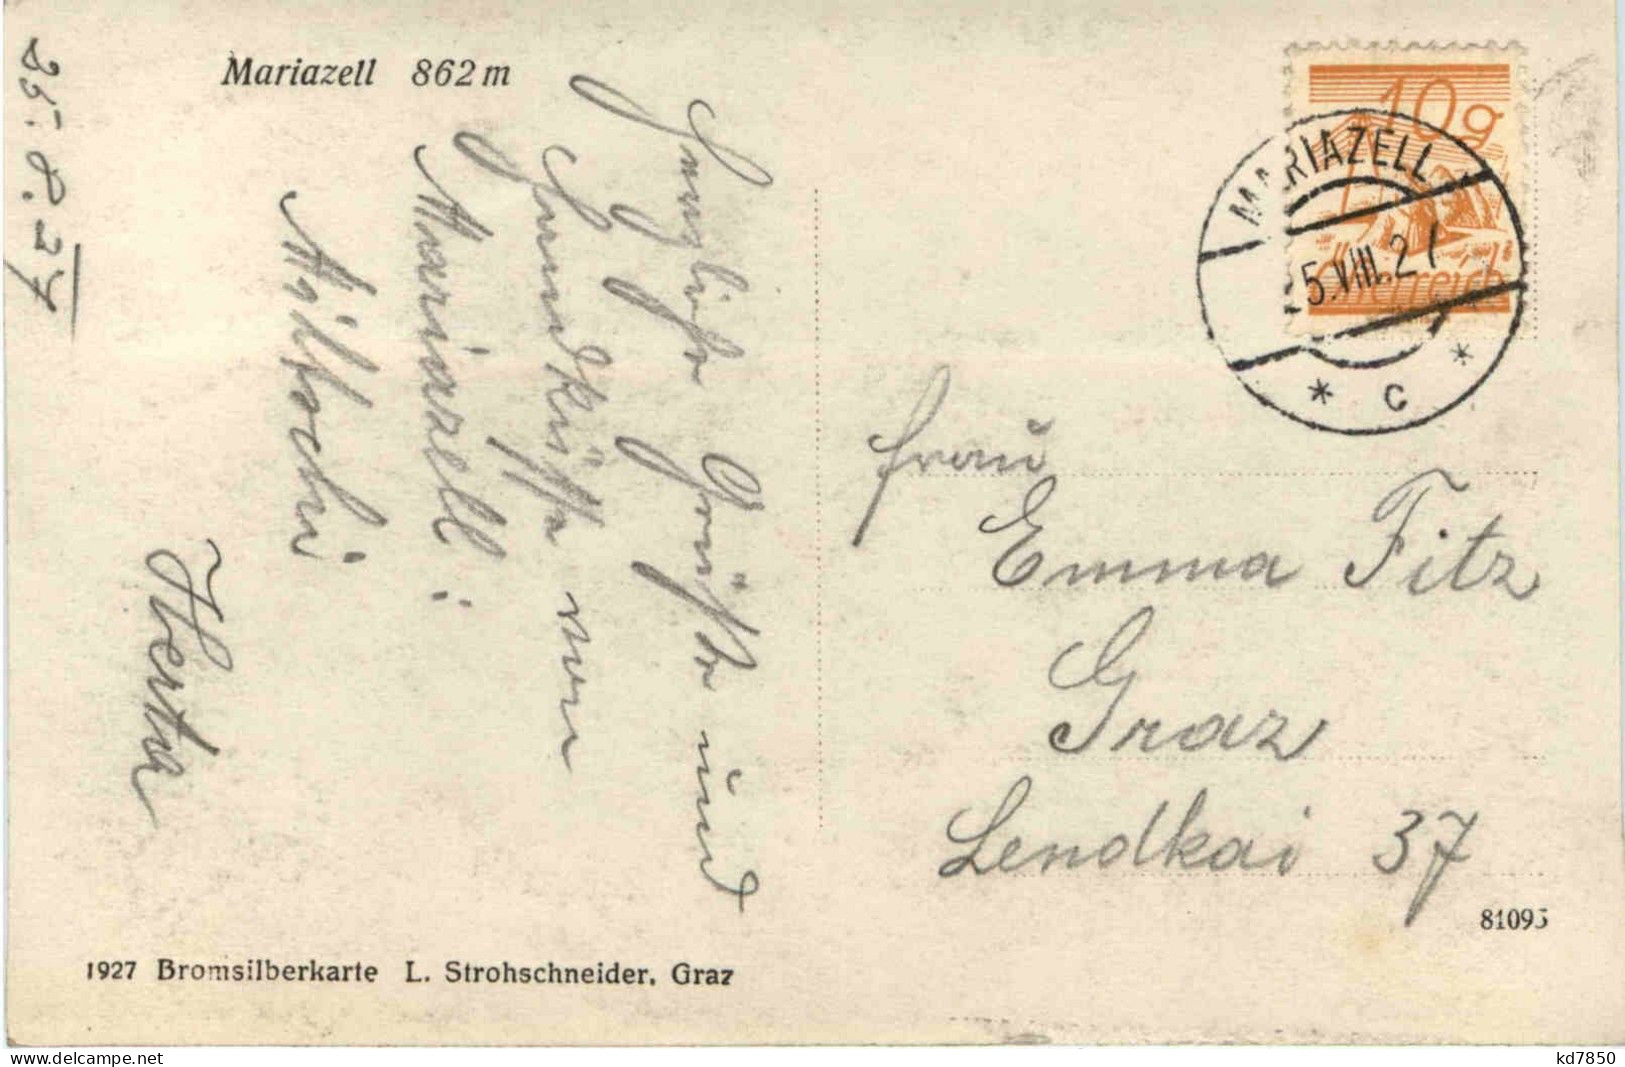 Mariazell 862 m
25. 8. 27
Herzliche Grüße und
Handküsse von
Mariazell!
Hertha
10g
Österreich
MARIAZELL
5.VIII.27
* c *
Frau
Emma Fitz
Graz
Lendkai 37
81095
1927 Bromsilberkarte L. Strohschneider, Graz
delcampe.net
kd7850